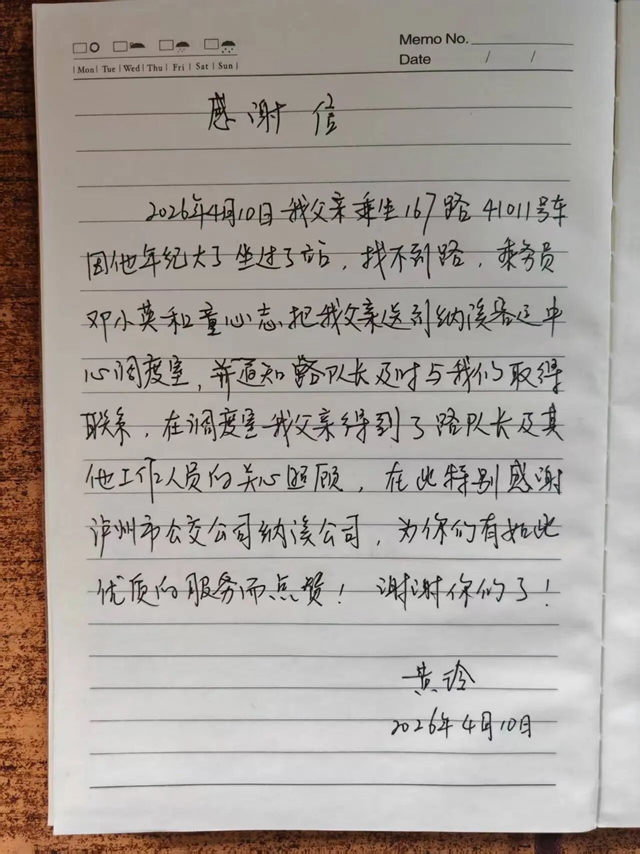 Memo No.
Mon Tue Wed Thu Fri Sat Sun
Date / /
感谢信
2026年4月10日我父亲乘坐167路41011号车
因他年纪大了坐过了站，找不到路，乘务员
邓小英和童心志把我父亲送到纳溪客运中
心调度室，并通知路队长及时与我们取得
联系，在调度室我父亲得到了路队长及其
他工作人员的关心照顾，在此特别感谢
泸州市公交公司纳溪公司，为你们有如此
优质的服务而点赞！谢谢你们了！
黄玲
2026年4月10日